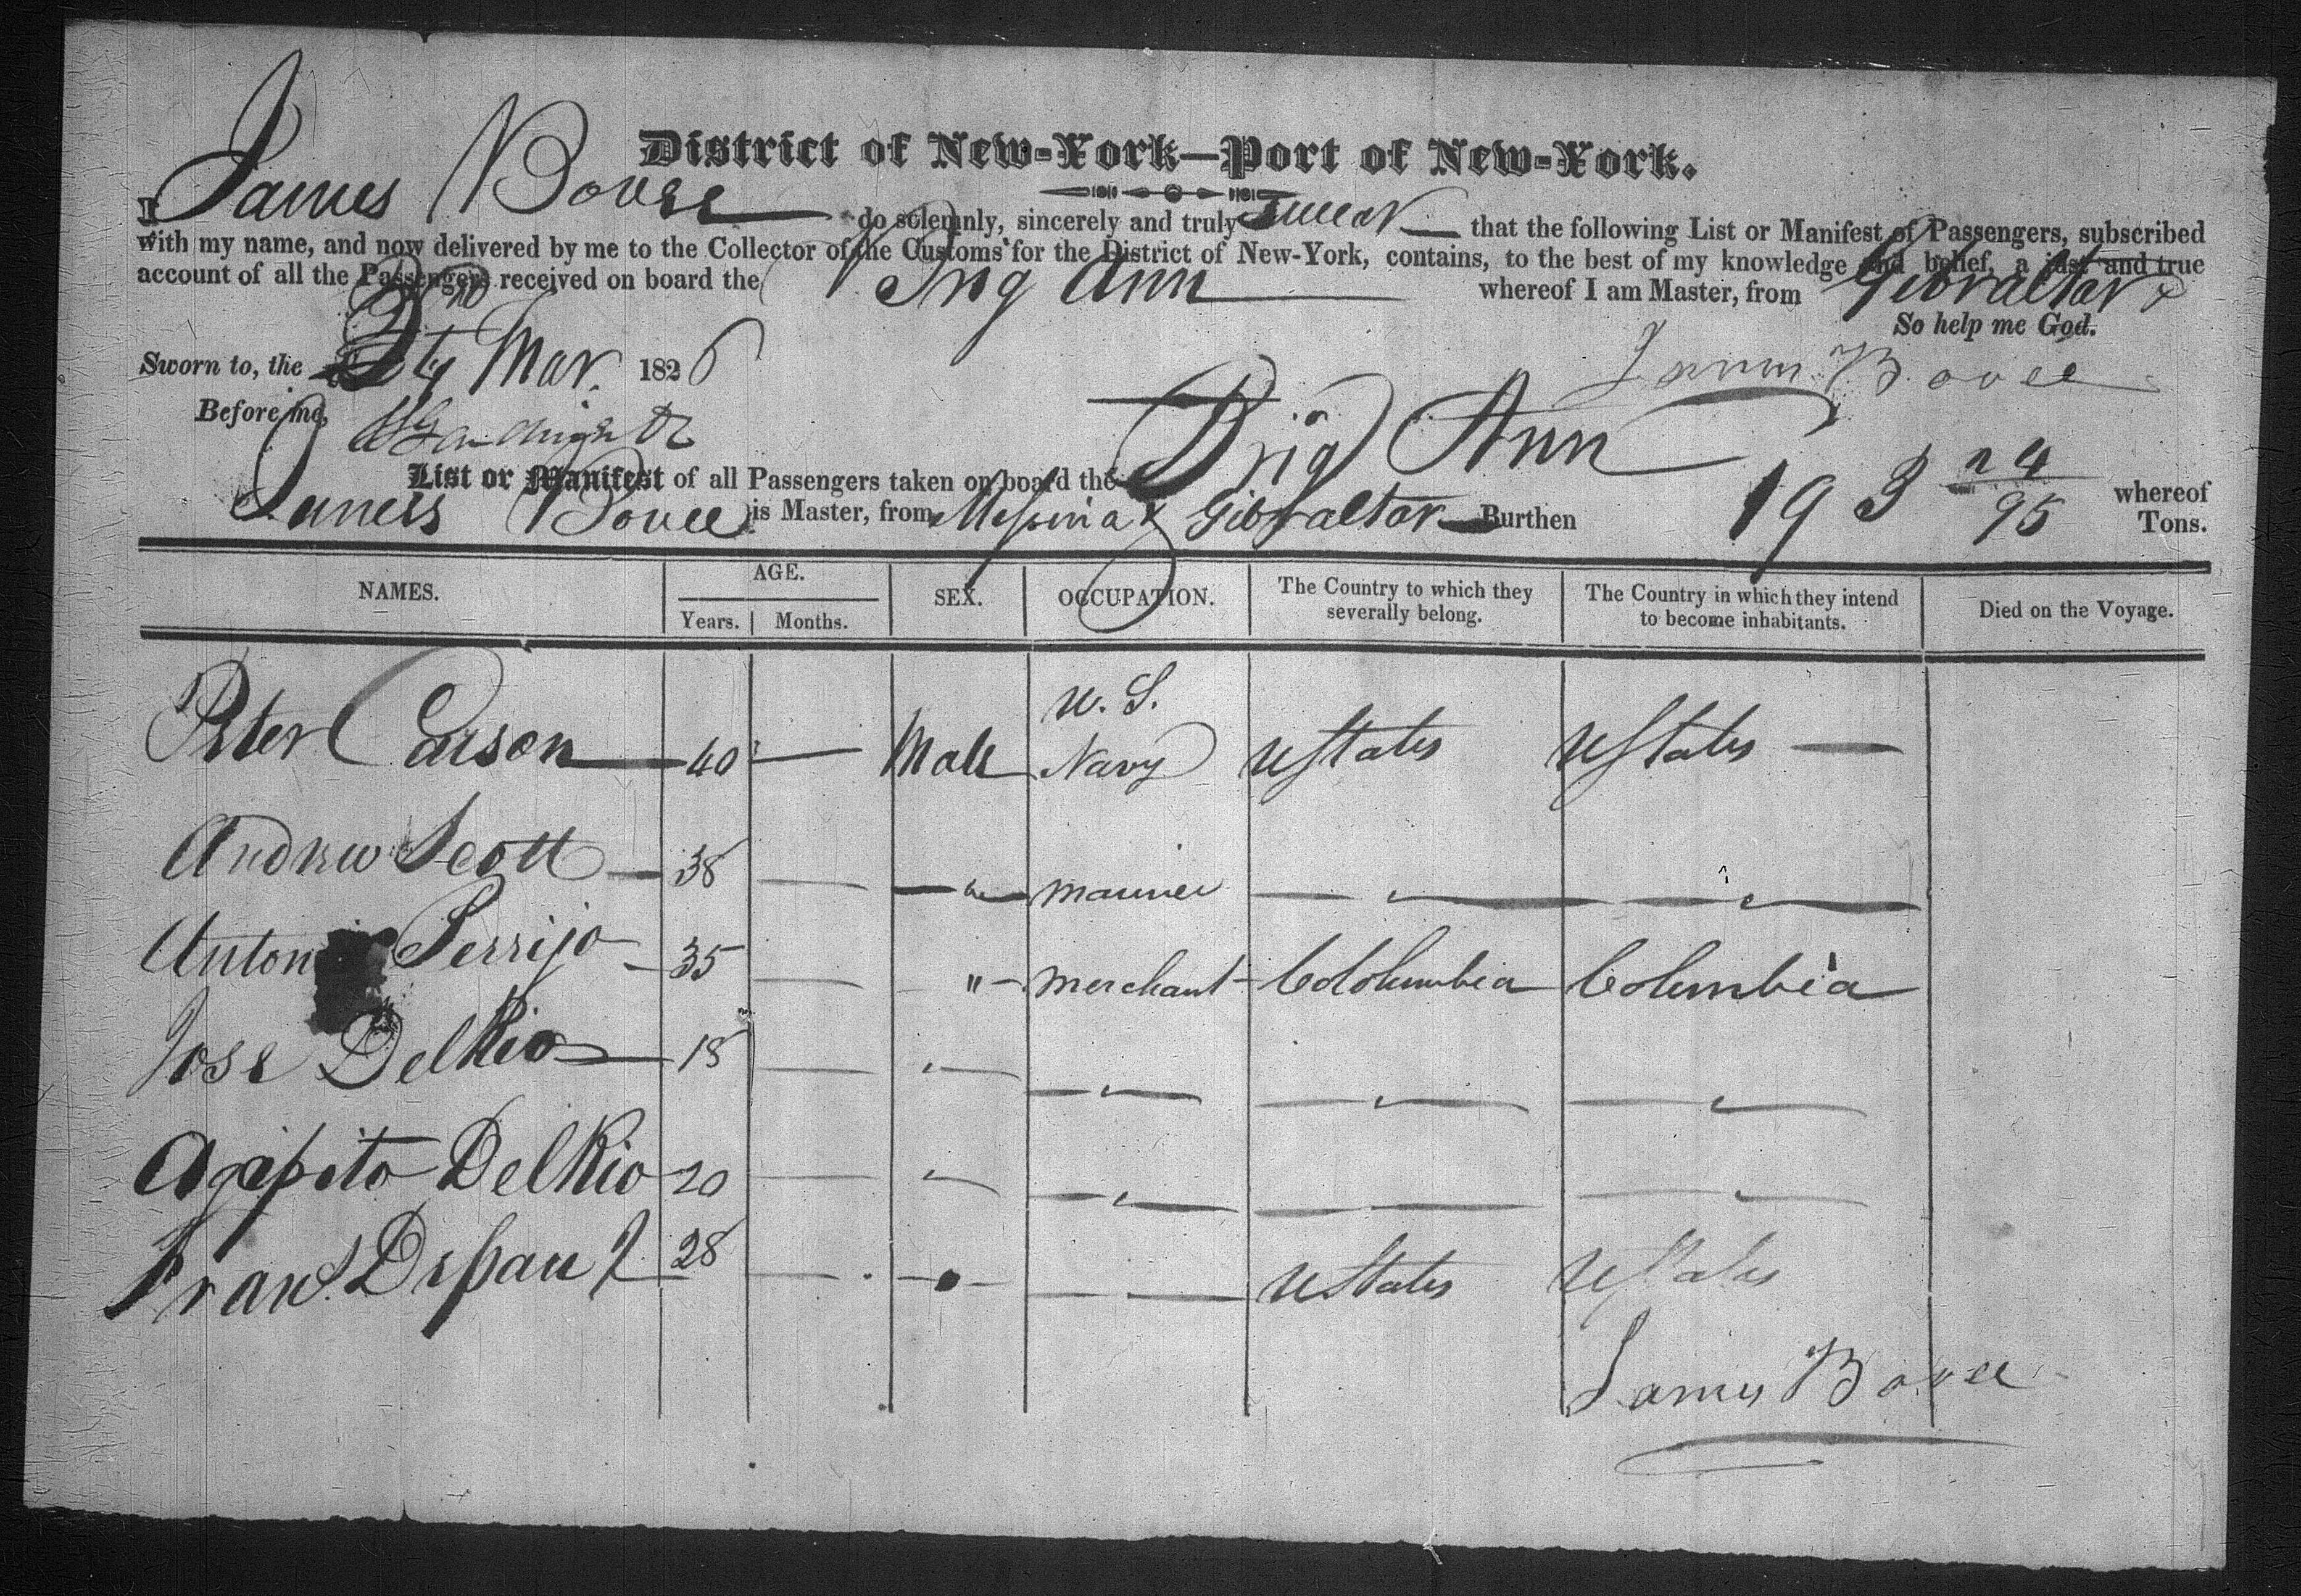 District of New-York—Port of New-York.
I James Bovee do solemnly, sincerely and truly swear that the following List or Manifest of Passengers, subscribed
with my name, and now delivered by me to the Collector of the Customs for the District of New-York, contains, to the best of my knowledge and belief, a just and true
account of all the Passengers received on board the Brig Ann whereof I am Master, from Gibraltar
So help me God.
Sworn to, the Mar. 1826 James Bovee
Before me,
List or Manifest of all Passengers taken on board the Brig Ann whereof
James Bovee is Master, from Messina & Gibraltar Burthen 193 24/95 Tons.
NAMES. AGE. Years. Months. SEX. OCCUPATION. The Country to which they severally belong. The Country in which they intend to become inhabitants. Died on the Voyage.
Peter Carson 40 — Male U.S. Navy UStates UStates —
Andrew Scott 38 — " mariner — " — — " —
Perrijo 35 — " merchant Cololumbia Columbia
Jose DelRio 18 — " — " — — " — — " —
Agapito DelRio 20 — " — " — — — — " —
Frans. Depau 28 — " — — UStates UStates
James Bovee